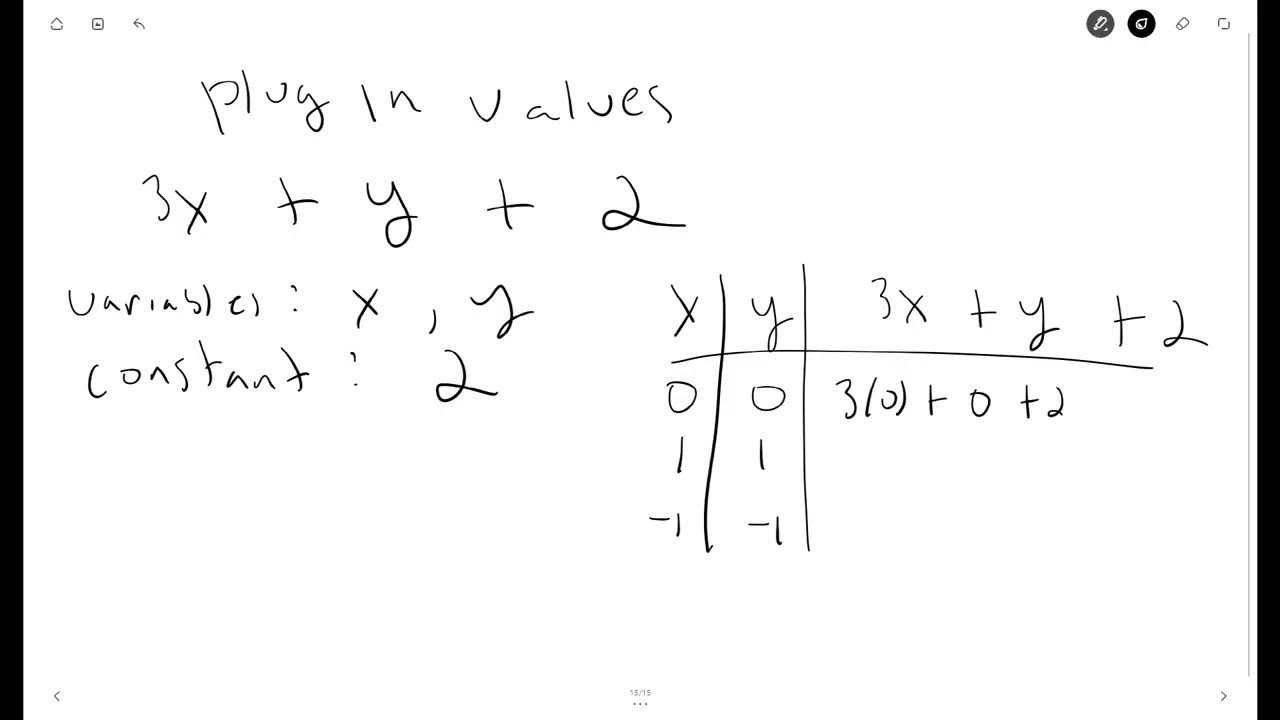 plug in values
3x + y + 2
variables: x, y
constant: 2
x y 3x + y + 2
0 0 3(0) + 0 + 2
1 1
-1 -1
15/15